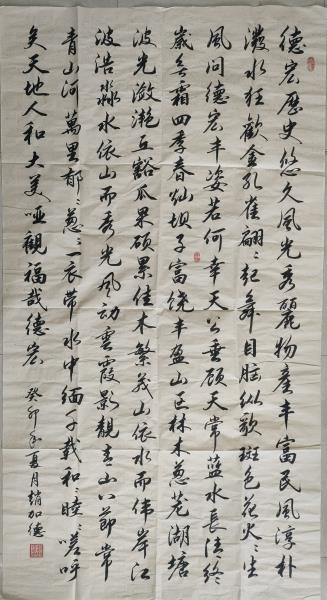 德宏历史悠久风光秀丽物产丰富民风淳朴
泼水狂歡金孔雀翩〻起舞目脑纵歌斑色花火〻生
风问德宏丰姿若何幸天公垂顾天常蓝水長清终
歲無霜四季春灿坝子富饶丰盈山区林木葱茏湖塘
波光潋滟丘豁瓜果硕累佳木繁茂山依水而伟岸江
波浩淼水依山而秀光风动雲霞影靓青山八節常
青山河萬里郁〻葱〻一衣带水中缅千载和〻睦〻嗟呼
矣天地人和大美哑觀福哉德宏
癸卯年夏月趙加德